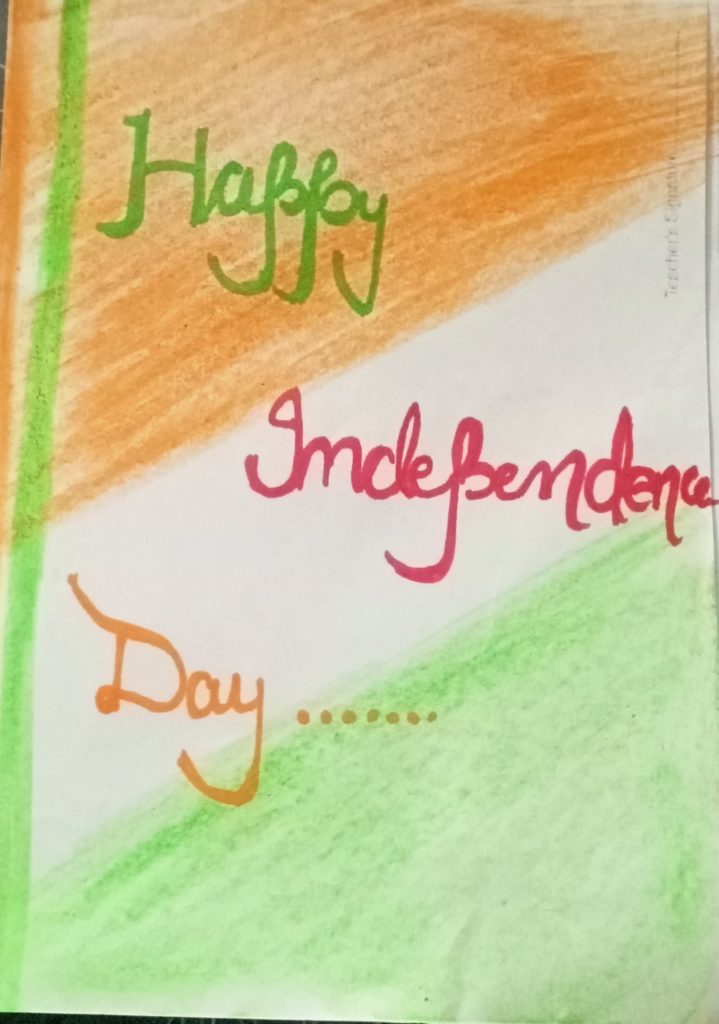 Happy
Independence
Day .......
Teacher's Signature